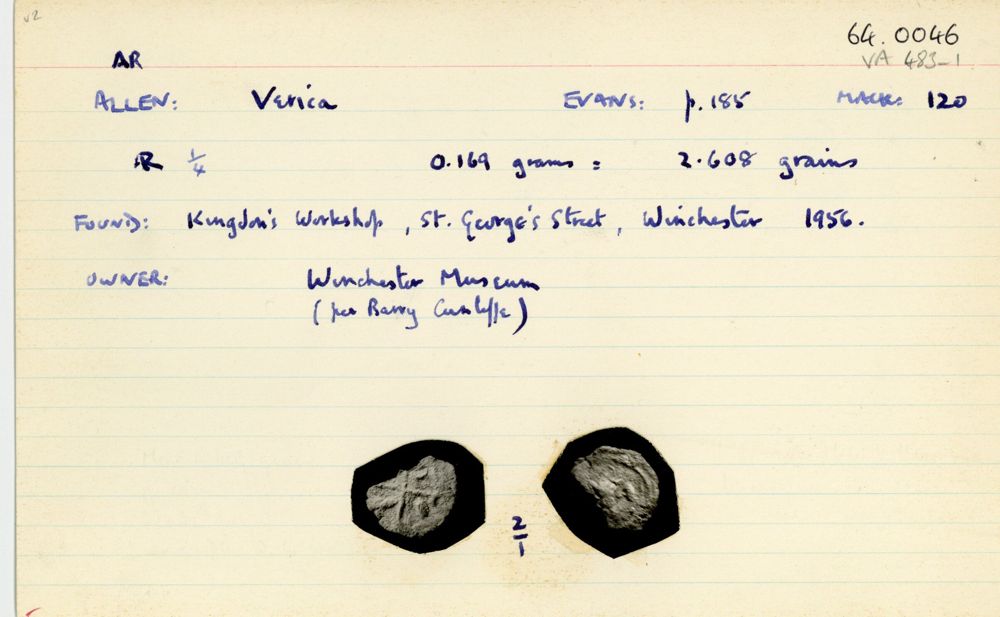 V2
64.0046
AR VA 483-1
ALLEN: Verica EVANS: p.185 MACK: 120
AR 1/4 0.169 grams = 2.608 grains
FOUND: Kingdon's Workshop, St. George's Street, Winchester 1956.
OWNER: Winchester Museum
(per Barry Cunliffe)
2/1